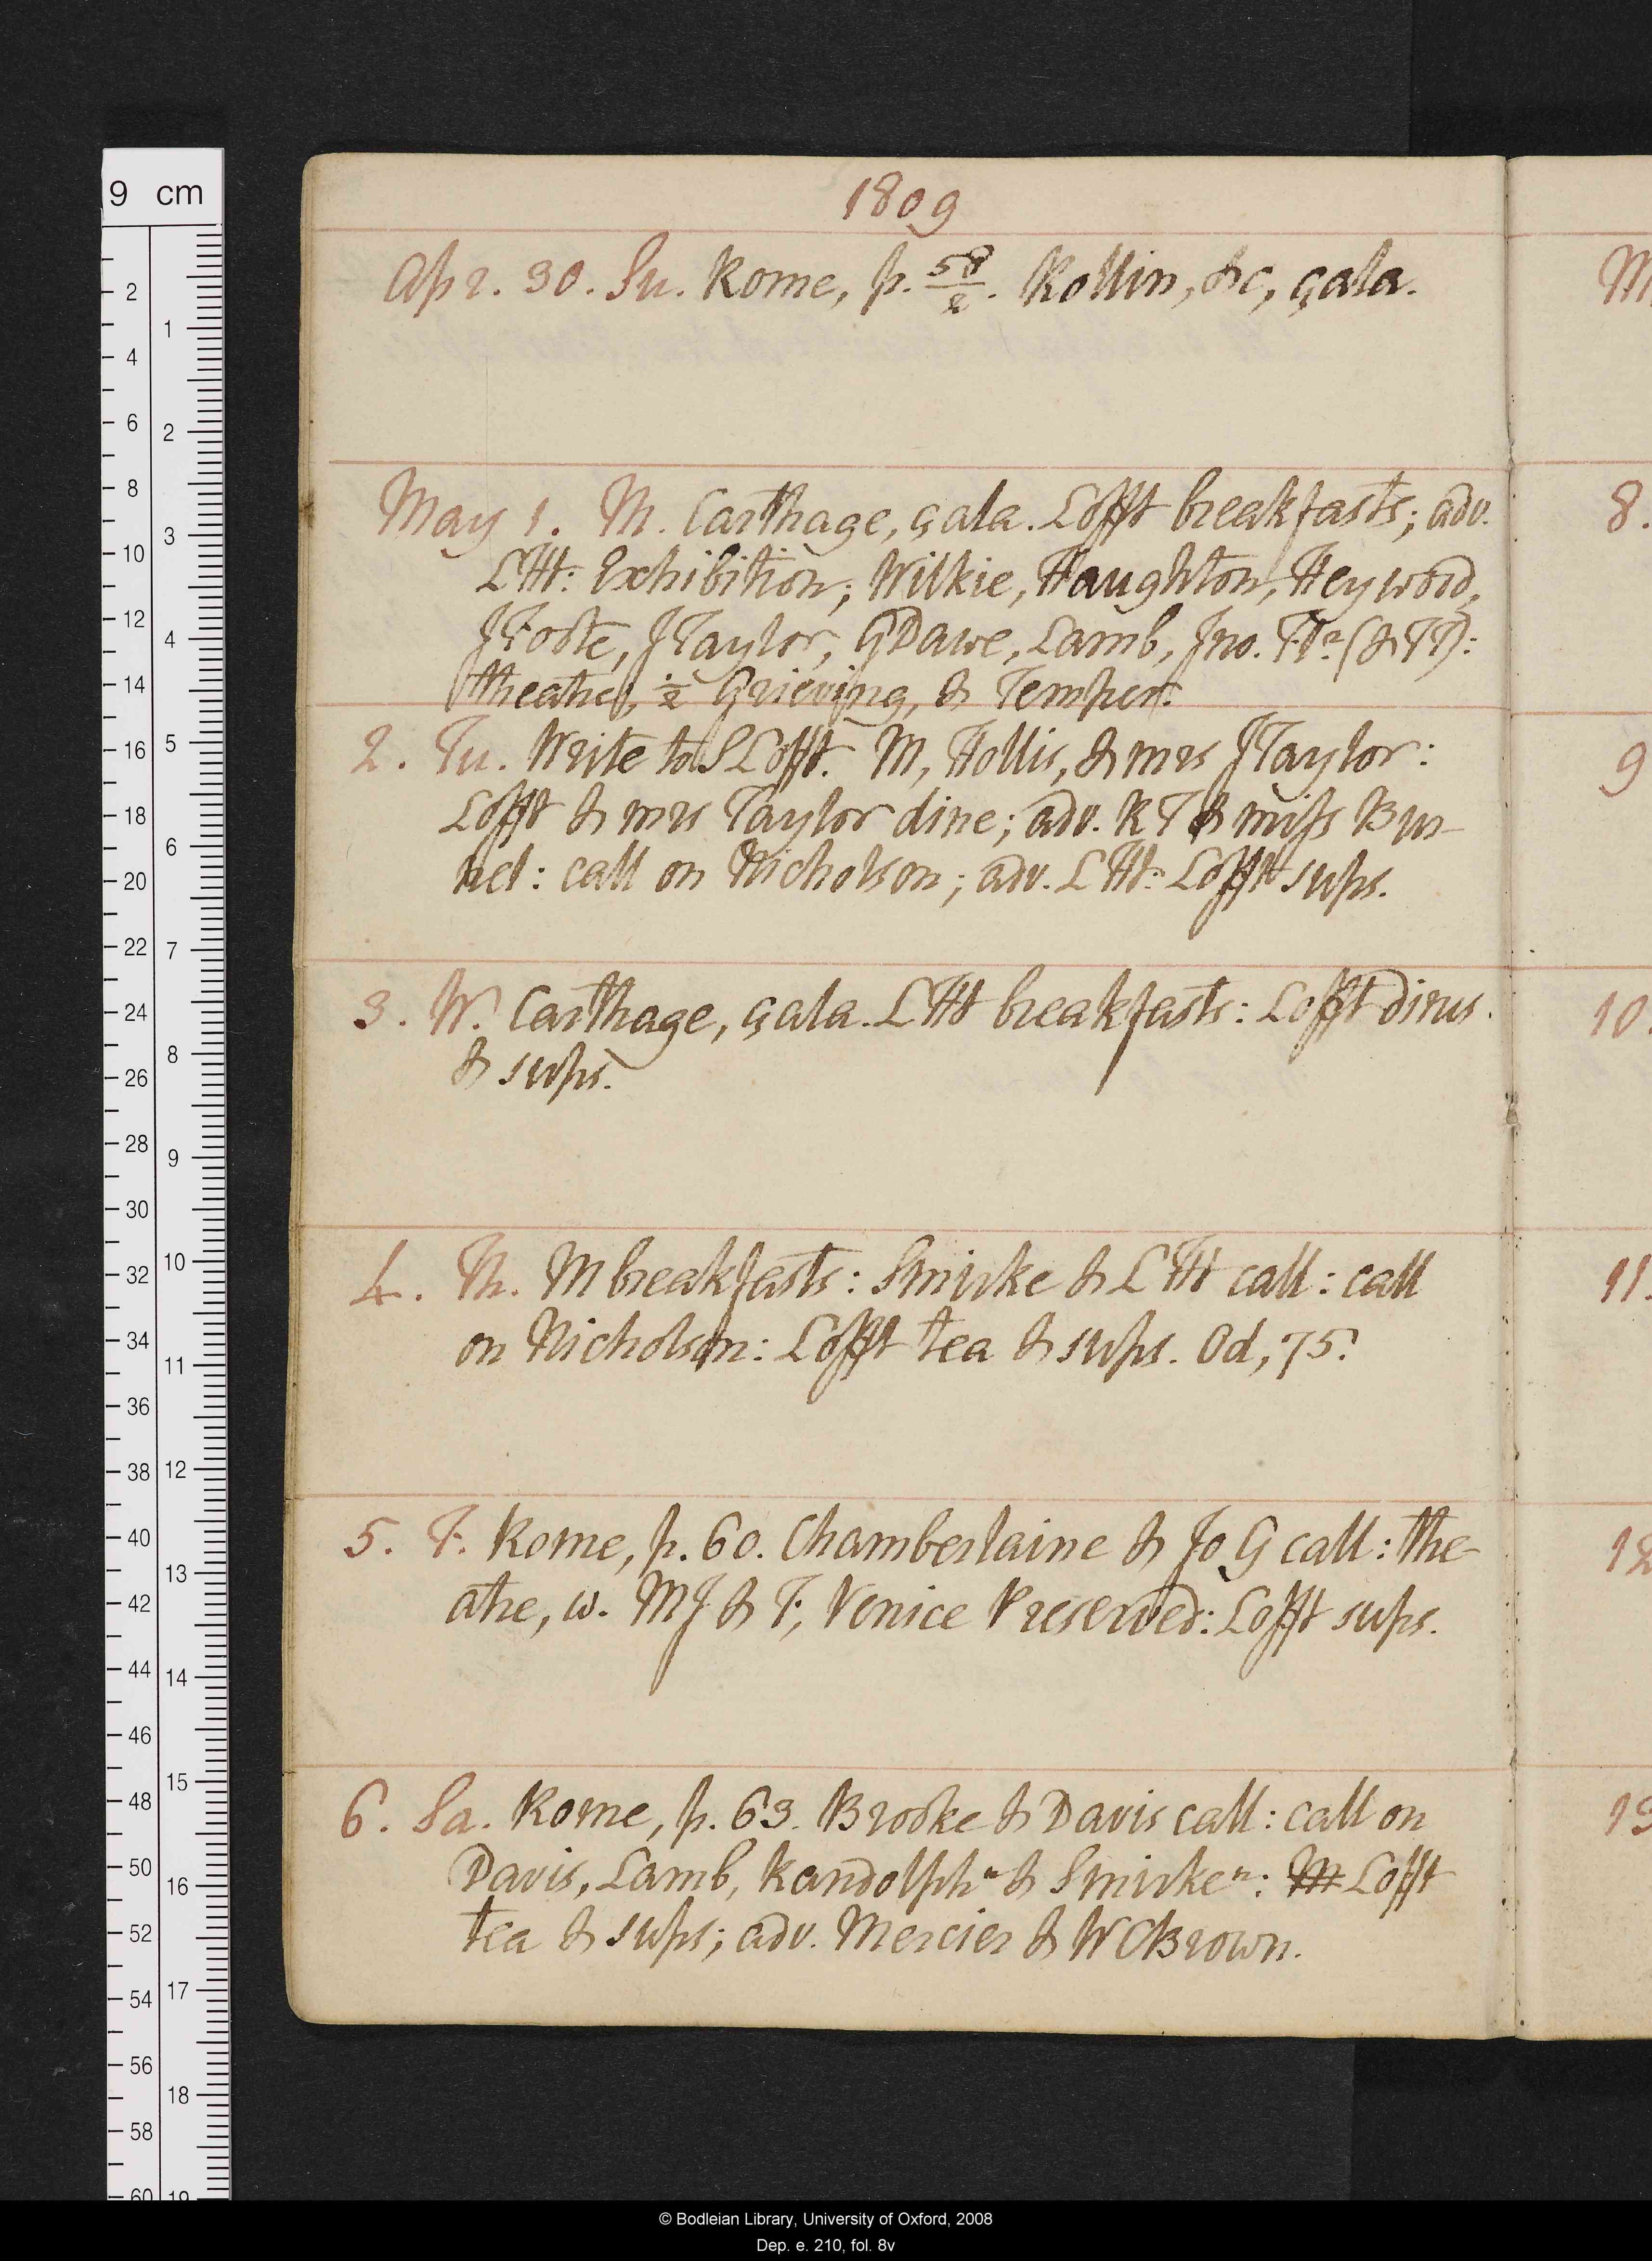 1809
Apr. 30. Su. Rome, p. 58/2. Rollin, &c, çala.
May 1. M. Carthage, çala. Lofft breakfasts; adv.
LHt: Exhibition; Wilkie, Haughton, Heywood,
JFoote, JTaylor, GDawe, Lamb, Jno. (& TT):
theatre, ½ Grieving, & Temper.
2. Tu. Write to SLofft. M, Hollis, & mrs JTaylor:
Lofft & mrs Taylor dine; adv. RT & miss Bun-
nel: call on Nicholson; adv. LHt: Lofft sups.
3. W. Carthage, çala. LHt breakfasts: Lofft dines
& sups.
4. Th. M breakfasts: Smirke & LHt call: call
on Nicholson: Lofft tea & sups. Od, 75.
5. F. Rome, p. 60. Chamberlaine & Jo G call: the-
atre, w. MJ & F, Venice Preserved: Lofft sups.
6. Sa. Rome, p. 63. Brooke & Davis call: call on
Davis, Lamb, Randolph n & Smirke n: M Lofft
tea & sups; adv. Mercier & WCBrown.
M
8.
9
10.
11.
12
13
9 cm
2
4
6
8
10
12
14
16
18
20
22
24
26
28
30
32
34
36
38
40
42
44
46
48
50
52
54
56
58
60
1
2
3
4
5
6
7
8
9
10
11
12
13
14
15
16
17
18
19
© Bodleian Library, University of Oxford, 2008
Dep. e. 210, fol. 8v